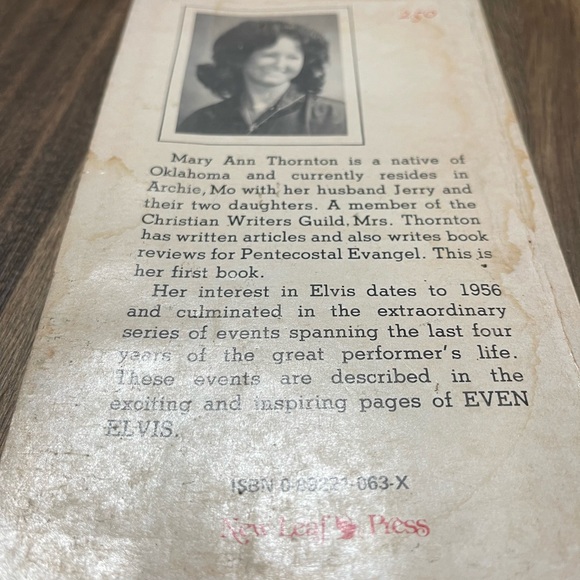 250
Mary Ann Thornton is a native of
Oklahoma and currently resides in
Archie, Mo with her husband Jerry and
their two daughters. A member of the
Christian Writers Guild, Mrs. Thornton
has written articles and also writes book
reviews for Pentecostal Evangel. This is
her first book.
Her interest in Elvis dates to 1956
and culminated in the extraordinary
series of events spanning the last four
years of the great performer's life.
These events are described in the
exciting and inspiring pages of EVEN
ELVIS.
ISBN 0-89221-063-X
New Leaf Press